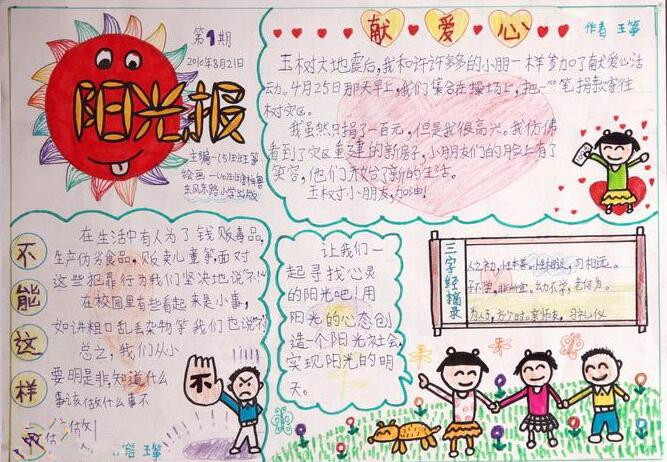 第1期
2010年8月21日
阳光报
主编—(5)班王筝
东风东路小学出版
献爱心
作者 王筝
玉树大地震后,我和许许多多的小朋一样参加了献爱心活
动。4月25日那天早上,我们集合在操场上,把一笔笔捐款寄往
树灾区。
我虽然只捐了一百元,但是我很高兴。我仿佛
看到了灾区重建的新房子,小朋友们的脸上有了
笑容,他们开始了新的生活。
玉树小朋友,加油!
不能这样
在生活中有人为了钱贩毒品,
生产伪劣食品,贩卖儿童等面对
这些犯罪行为我们坚决地说“不”
在校园里有些看起来是小事,
如讲粗口乱丢杂物等我们也说“不”
总之,我们从小
要明是非,知道什么
事该做什么事不
做
王筝
不
让我们一
起寻找心灵
的阳光吧!用
阳光的心态创
造一个阳光社会,
实现阳光的明
天。
三字经摘录
人之初,性本善。性相近,习相远。
子不学,非所宜,幼不学,老何为。
为人子,方少时。亲师友,习礼仪